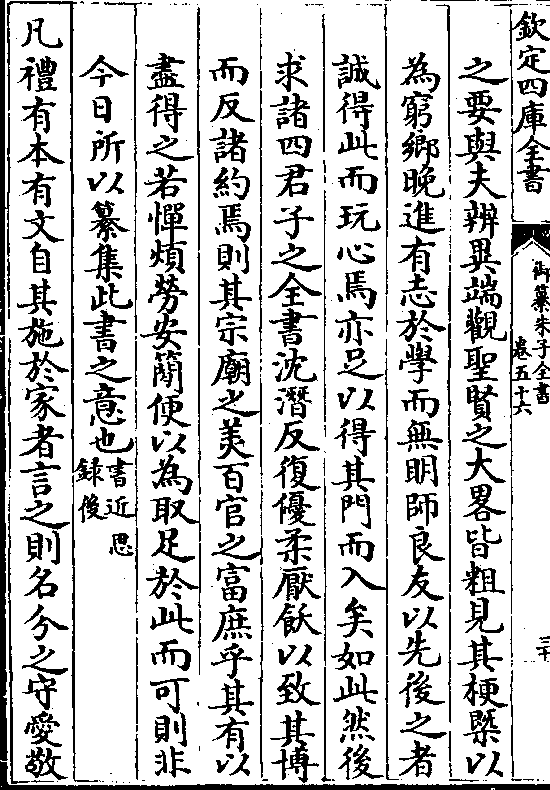 欽定四庫全書
御纂朱子全書
卷五十六
三十
之要與夫辨異端觀聖賢之大畧皆粗見其梗槩以
為窮鄉晚進有志於學而無明師良友以先後之者
誠得此而玩心焉亦足以得其門而入矣如此然後
求諸四君子之全書沈潛反復優柔厭飫以致其博
而反諸約焉則其宗廟之美百官之富庶乎其有以
盡得之若憚煩勞安簡便以為取足於此而可則非
今日所以纂集此書之意也書近思
録後
凡禮有本有文自其施於家者言之則名分之守愛敬